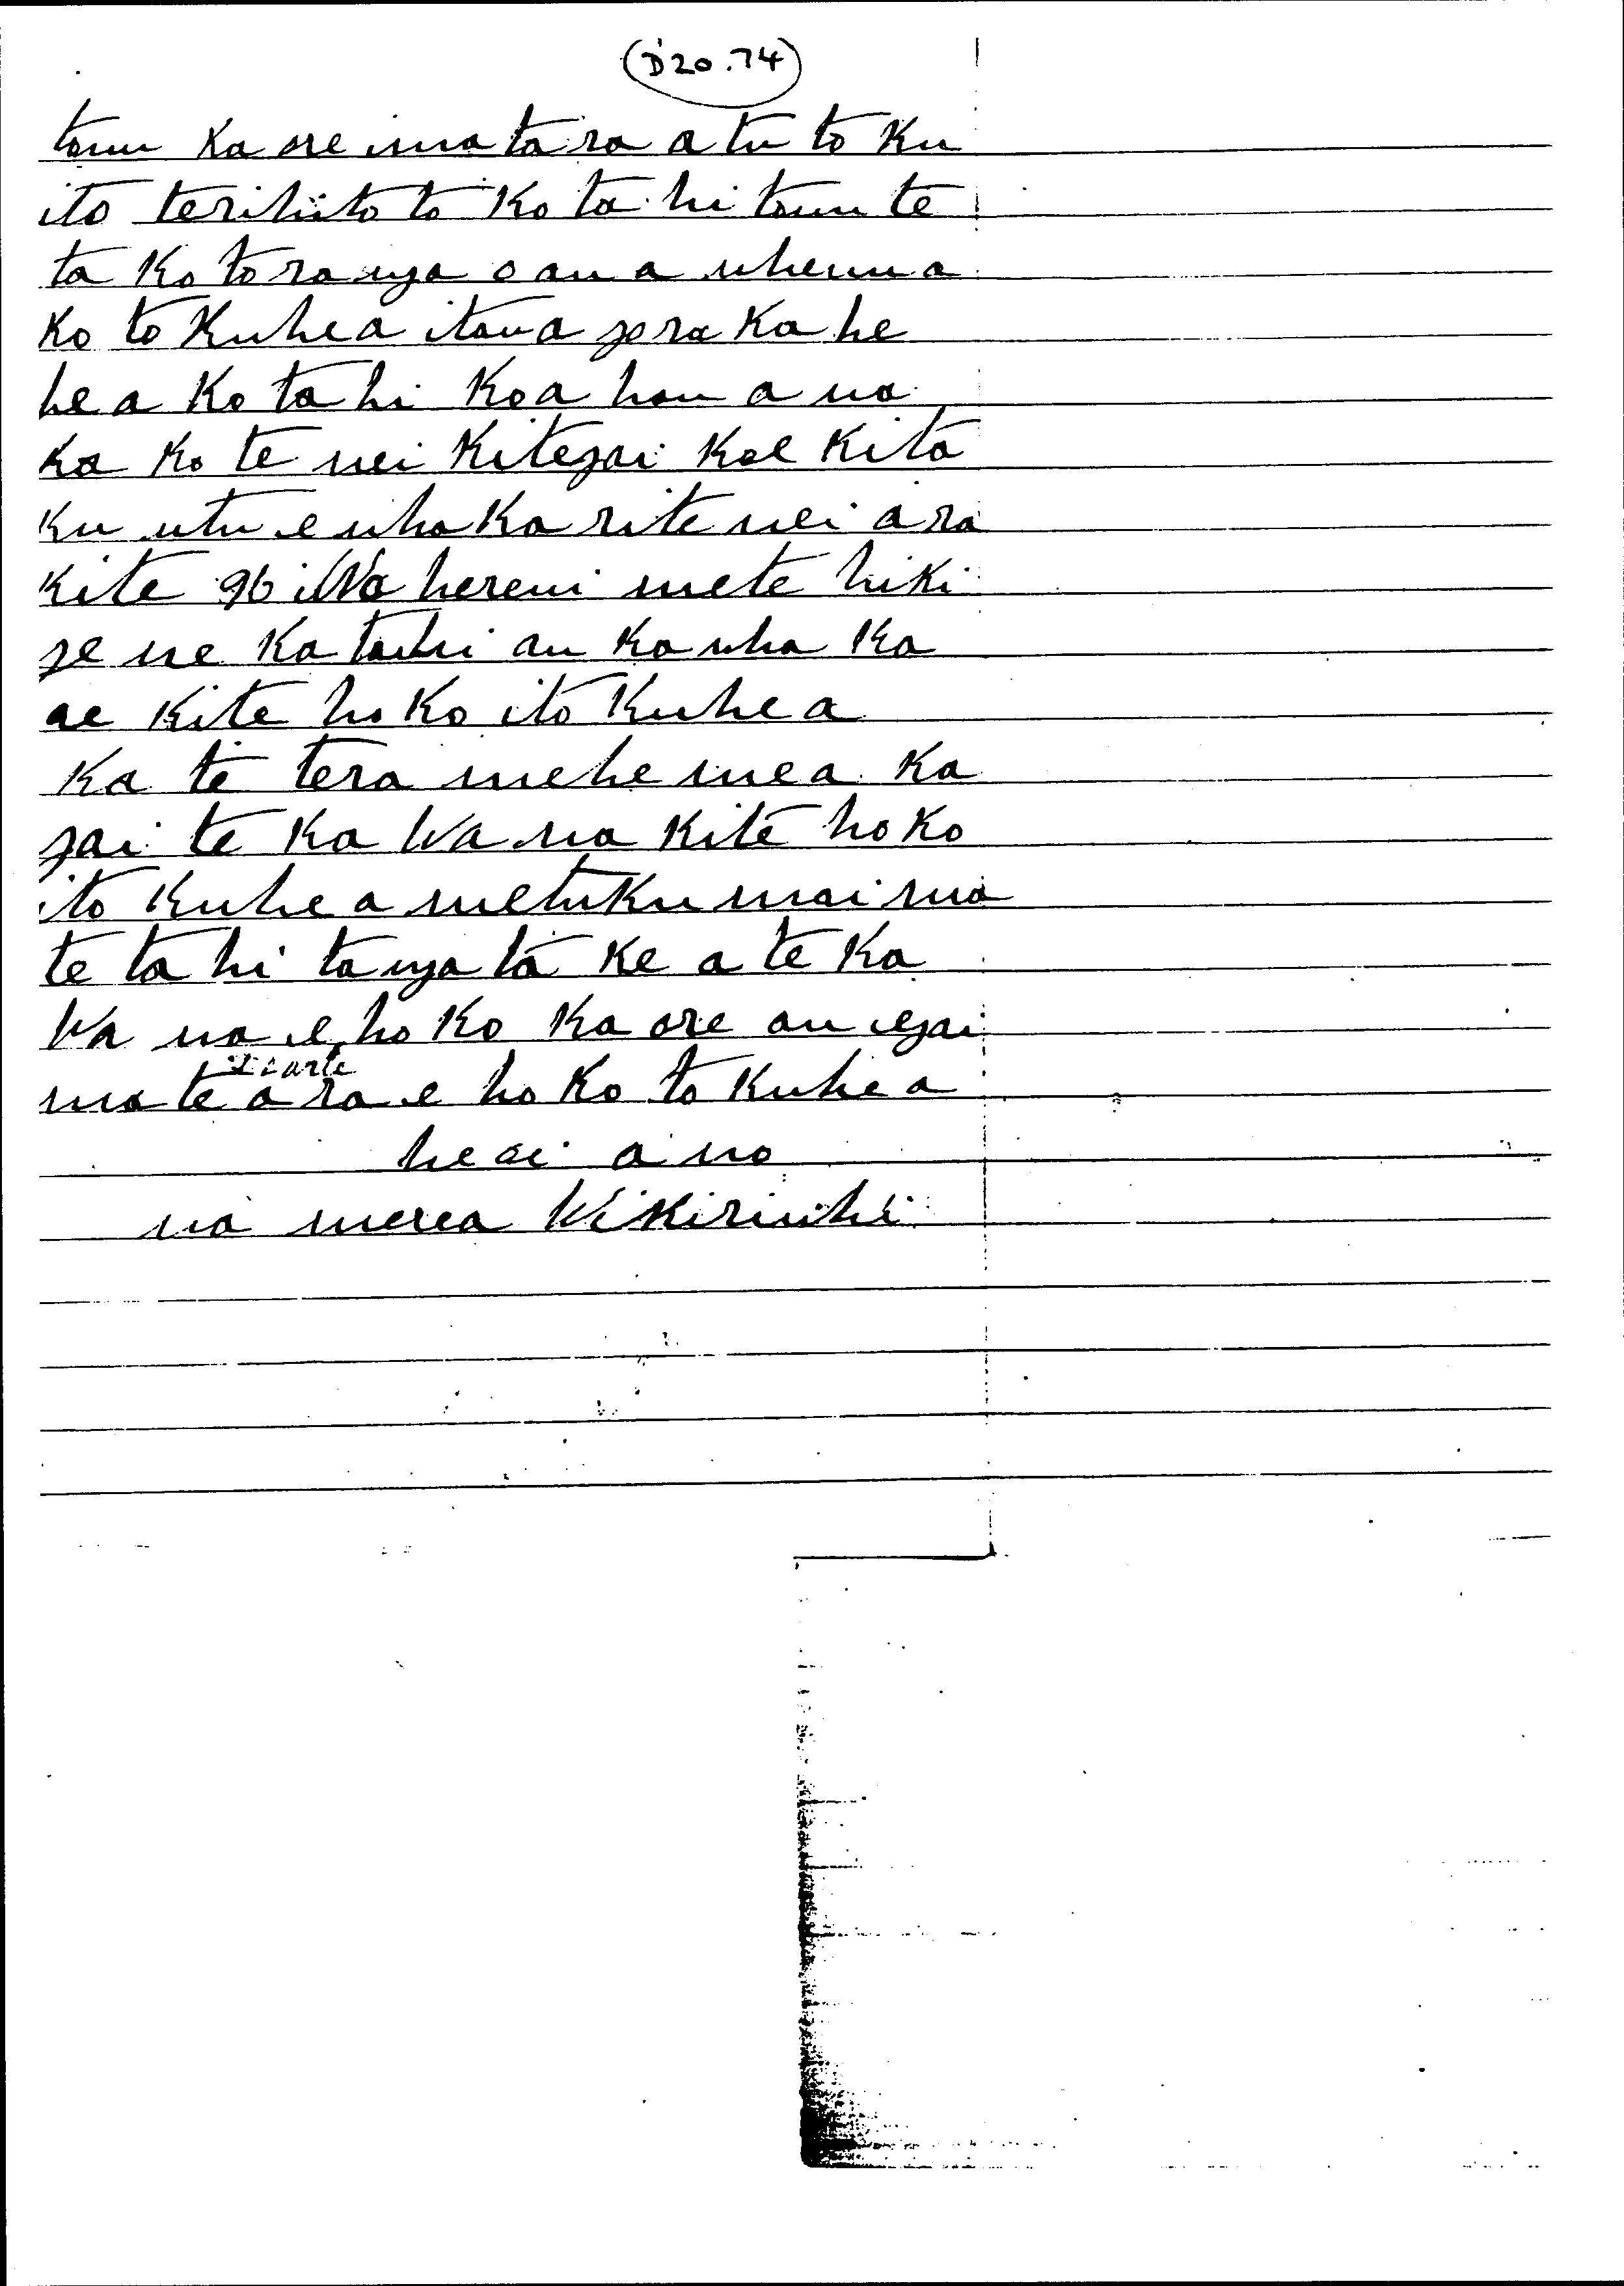 (D20.74)
tonu Ka ore i matara atu to Ku
ito terihiito to Ko ta hi tonu te
ta Ko to ranga o aua whenua
Ko to Ku hea i taua pora Ka he
he a Ko ta hi Ko a hau a na
Ka Ko te nei Ki te pai Koe Ki ta
Ku utu e wha Ka rite nei ara
Ki te 96 i Na hereni me te hiki
pe ne Ka tahi au Ka wha Ka
ae Ki te ho Ko i to Ku he a
Ka te tera mehe mea Ka
pai te Ka Wa na Ki te ho Ko
ito Ku he a me tuku mai ma
te ta hi ta nga ta Ke a te Ka
Wa na e ho Ko Ka ore au e pai
ma te a ra e ho Ko to Ku he a
he oi a no
na merea WiKiriwhi